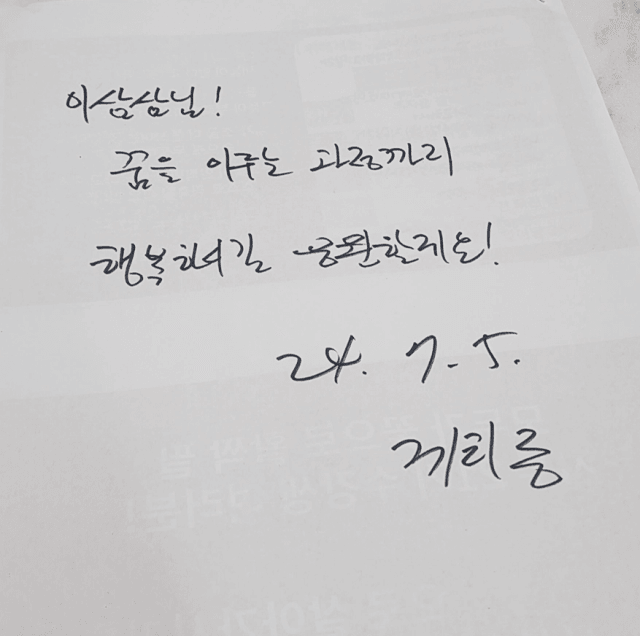 이상삼님!
꿈을 이루는 과정까지
행복하시길 응원할게요!
24. 7. 5.